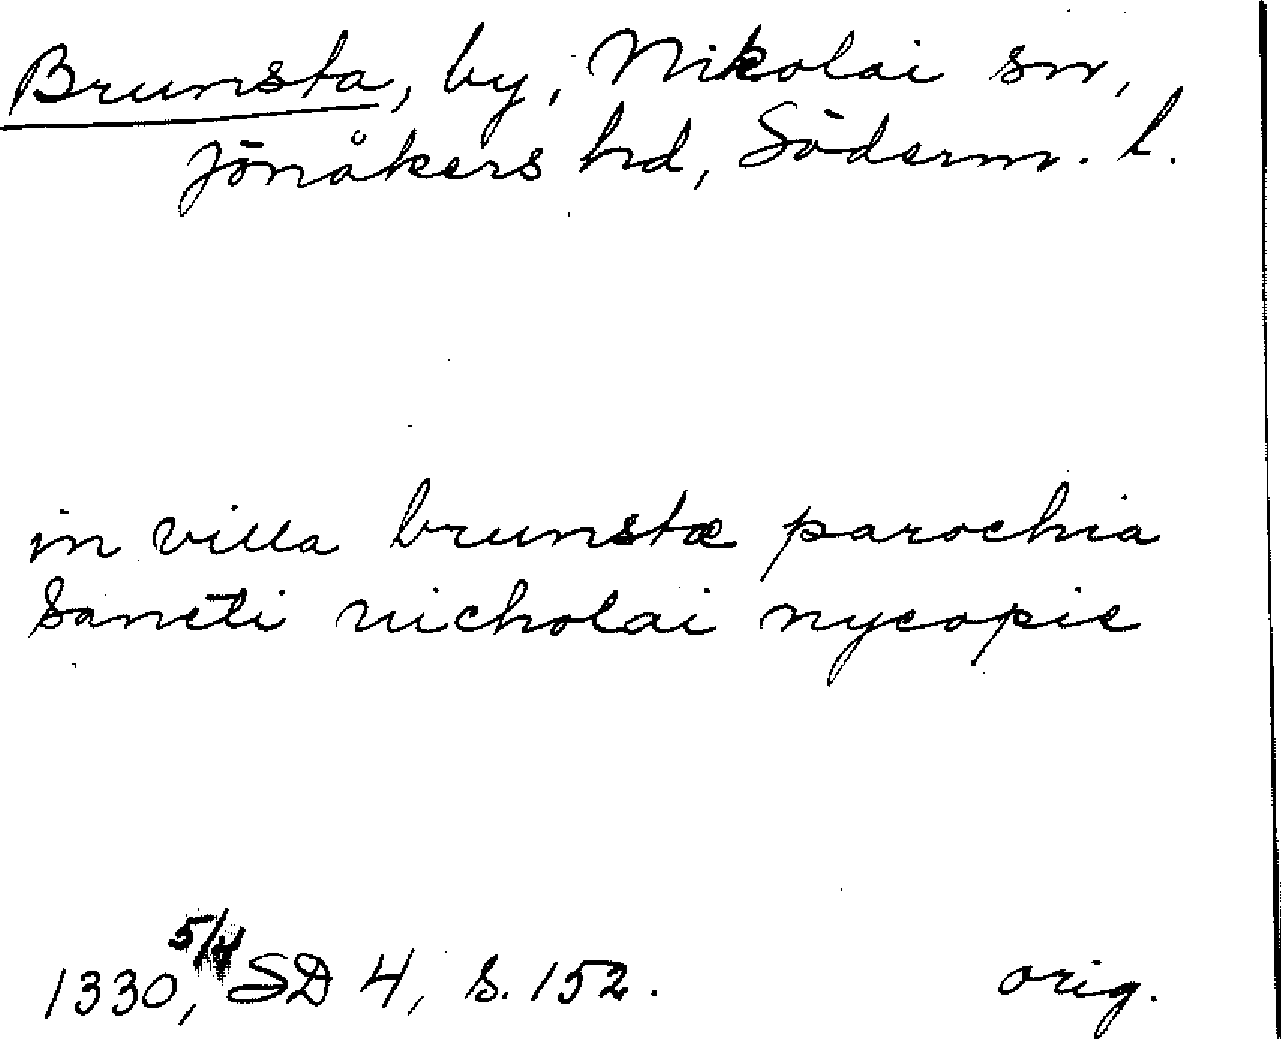 Brunsta, by, Nikolai sn,
Jönåkers hd, Söderm. l.
in villa brunstæ parochia
Sancti nicholai nycopie
1330, 5/4 SD 4, s. 152.
orig.